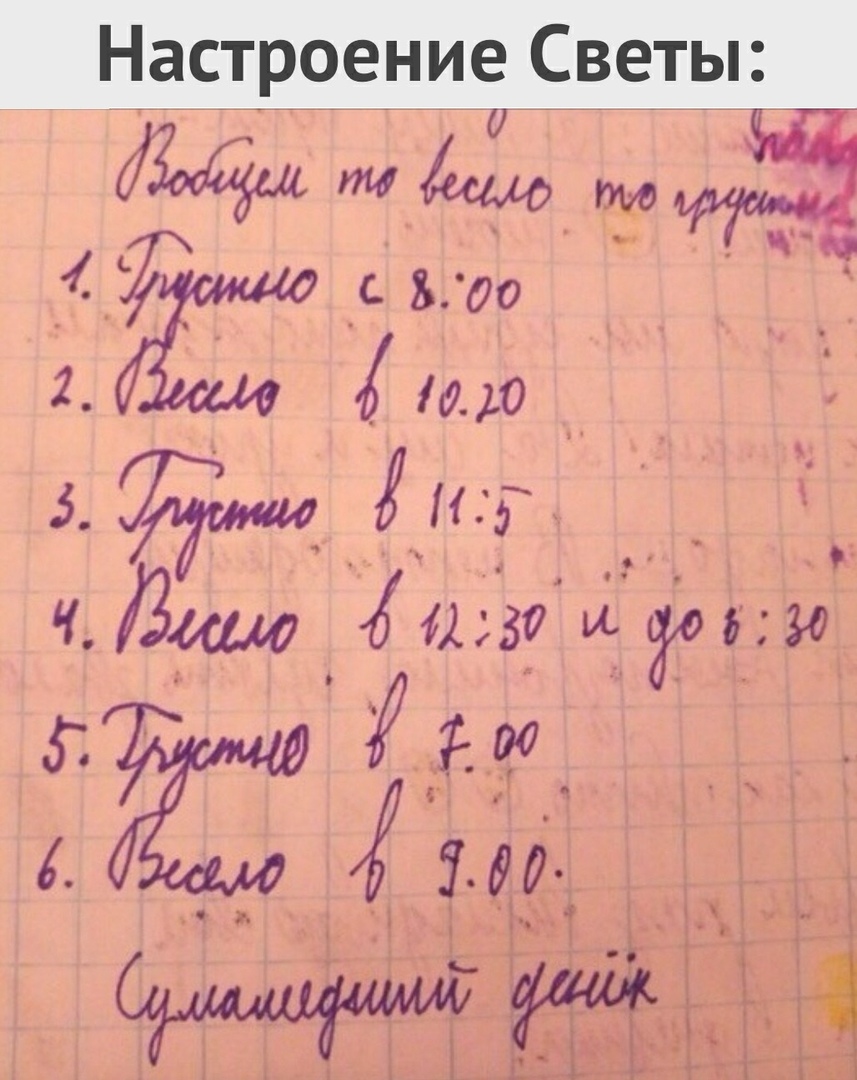 Настроение Светы:
Вобщем то весело то грустно
1. Грустно с 8:00
2. Весело в 10.20
3. Грустно в 11:5
4. Весело в 12:30 и до 6:30
5. Грустно в 7.00
6. Весело в 9.00.
Сумашедший денёк